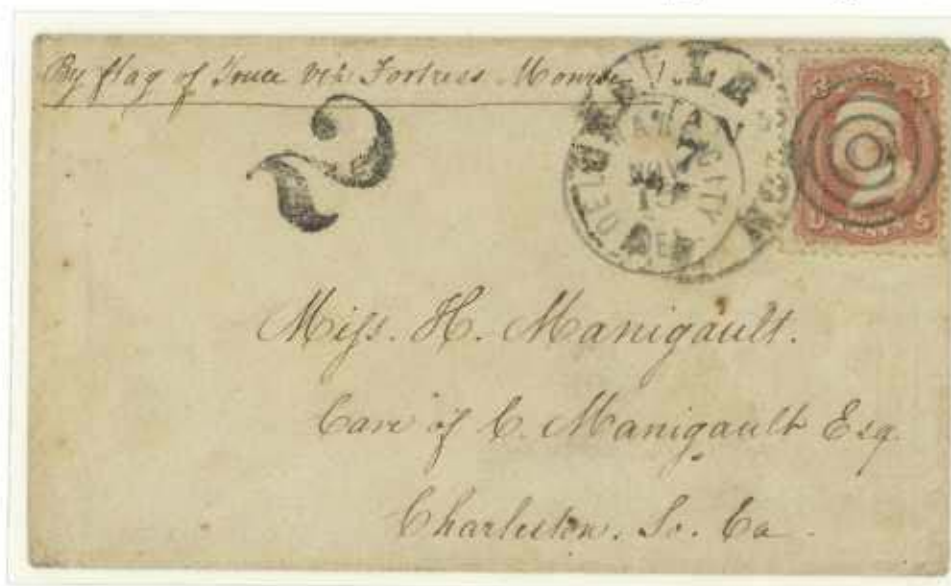 By flag of Truce via Fortress Monroe
2
DELAWARE CITY
NOV
DEL.
Miss. H. Manigault.
Care of C. Manigault Esq.
Charleston. So. Ca.